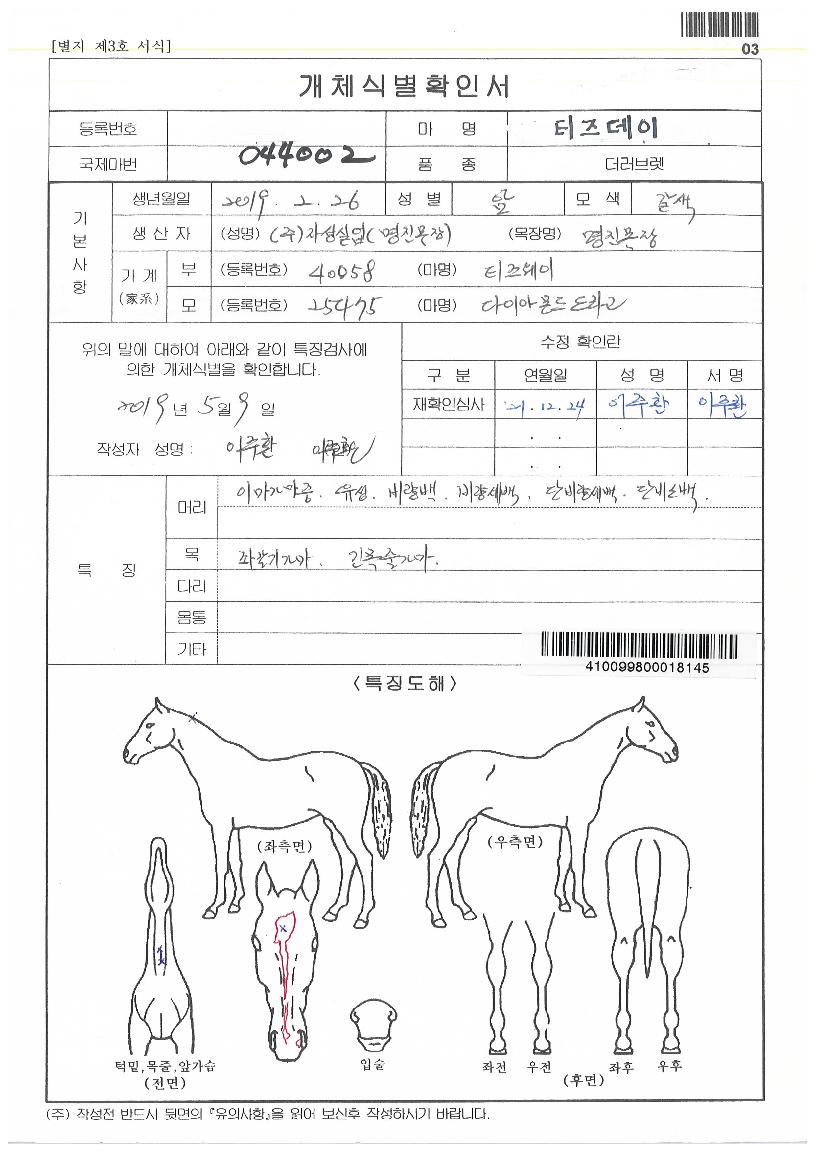 [별지 제3호 서식]
03
개체식별확인서
등록번호 마 명 티즈데이
국제마번 044002 품 종 더러브렛
기본사항
생년월일 2019. 2. 26 성 별 암 모 색 갈색
생 산 자 (성명) (주)자성실업(명진목장) (목장명) 명진목장
가 계 (家系)
부 (등록번호) 40058 (마명) 티즈웨이
모 (등록번호) 25475 (마명) 다이아몬드드라고
위의 말에 대하여 아래와 같이 특징검사에
의한 개체식별을 확인합니다.
2019 년 5월 9 일
작성자 성명 : 이주환 이주환
수정 확인란
구 분 연월일 성 명 서 명
재확인심사 '21.12.24 이주환 이주환
. .
. .
특 징
머리 이마가마중. 유성. 비량백. 비량세백. 단비량세백. 단비소백.
목 좌갈기가마. 긴목줄가마.
다리
몸통
기타
410099800018145
<특징도해>
(좌측면)
(우측면)
턱밑,목줄,앞가슴
(전면)
입술
좌전 우전 좌후 우후
(후면)
(주) 작성전 반드시 뒷면의 『유의사항』을 읽어 보신후 작성하시기 바랍니다.